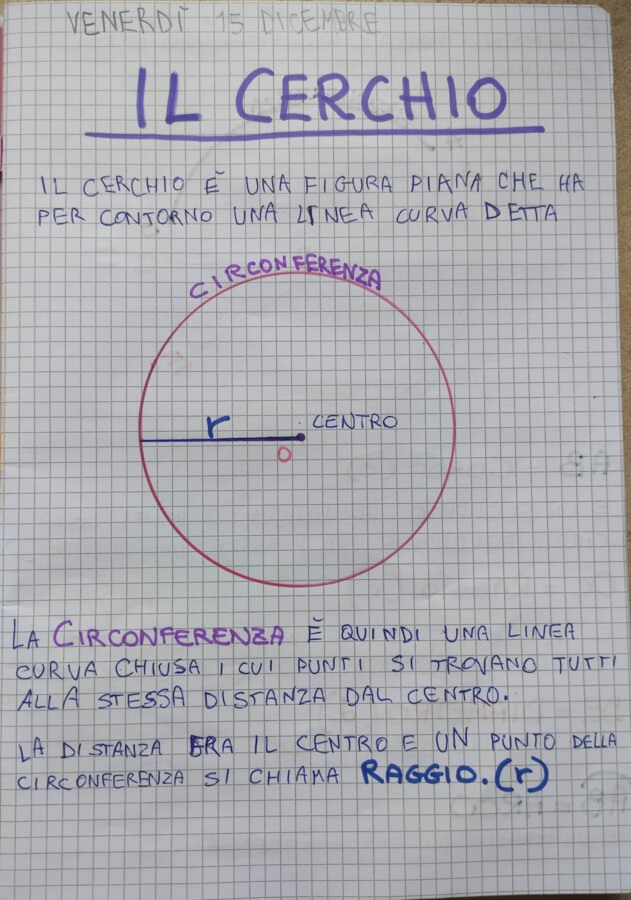 VENERDÌ 15 DICEMBRE
IL CERCHIO
IL CERCHIO È UNA FIGURA PIANA CHE HA
PER CONTORNO UNA LINEA CURVA DETTA
CIRCONFERENZA
r
CENTRO
O
LA CIRCONFERENZA È QUINDI UNA LINEA
CURVA CHIUSA I CUI PUNTI SI TROVANO TUTTI
ALLA STESSA DISTANZA DAL CENTRO.
LA DISTANZA FRA IL CENTRO E UN PUNTO DELLA
CIRCONFERENZA SI CHIAMA RAGGIO.(r)